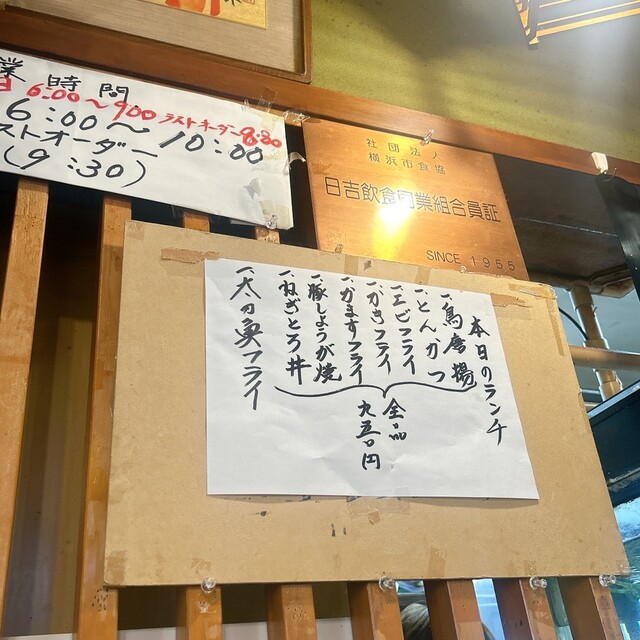 業時間
日 6:00〜9:00 ラストオーダー8:30
6:00〜10:00
ストオーダー
(9:30)
社団法人
横浜市食協
日吉飲食同業組合員証
SINCE 1955
本日のランチ
一、鳥唐揚
一、とんかつ
一、エビフライ
一、かきフライ
一、かますフライ
一、豚しょうが焼
一、ねぎとろ丼
一、太刀魚フライ
全品
九五〇円